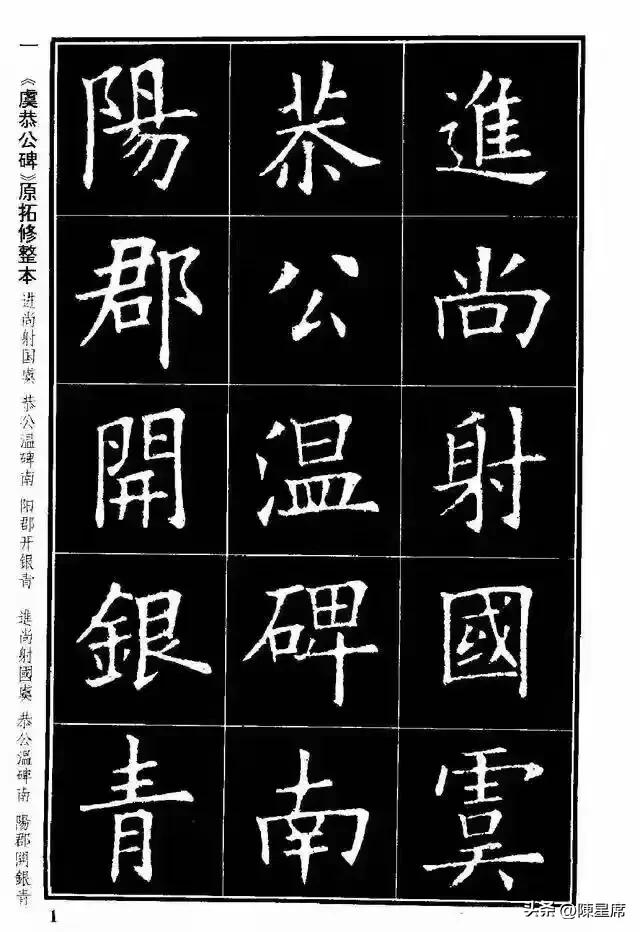 進尚射國虞
恭公温碑南
陽郡開銀青
一 《虞恭公碑》原拓修整本 进尚射国虞 恭公温碑南 阳郡开银青 進尚射國虞 恭公温碑南 陽郡開銀青
1
头条@陳星席